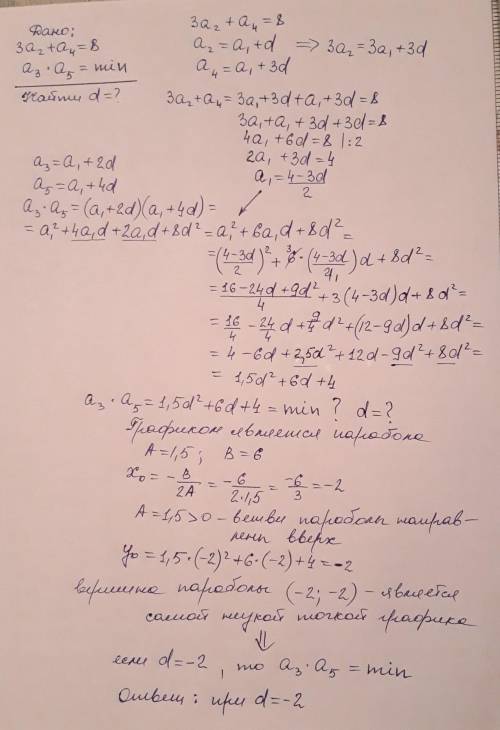 Дано:
3a₂+a₄=8
a₃·a₅=min
Найти d=?
3a₂+a₄=8
a₂=a₁+d ⇒ 3a₂=3a₁+3d
a₄=a₁+3d
3a₂+a₄=3a₁+3d+a₁+3d=8
3a₁+a₁+3d+3d=8
4a₁+6d=8 |:2
2a₁+3d=4
a₁=(4-3d)/2
a₃=a₁+2d
a₅=a₁+4d
a₃·a₅=(a₁+2d)(a₁+4d)=
=a₁²+4a₁d+2a₁d+8d²=a₁²+6a₁d+8d²=
=((4-3d)/2)²+6³·((4-3d)/2₁)d+8d²=
=(16-24d+9d²)/4+3(4-3d)d+8d²=
=16/4-24/4d+9/4d²+(12-9d)d+8d²=
=4-6d+2,5d²+12d-9d²+8d²=
=1,5d²+6d+4
a₃·a₅=1,5d²+6d+4=min? d=?
Графиком является парабола
A=1,5; B=6
x₀=-B/2A=-6/2·1,5=-6/3=-2
A=1,5>0 - ветви параболы направ-
лены вверх
y₀=1,5·(-2)²+6·(-2)+4=-2
вершина параболы (-2;-2) - является
самой низкой точкой графика
⇓
если d=-2, то a₃·a₅=min
Ответ: при d=-2